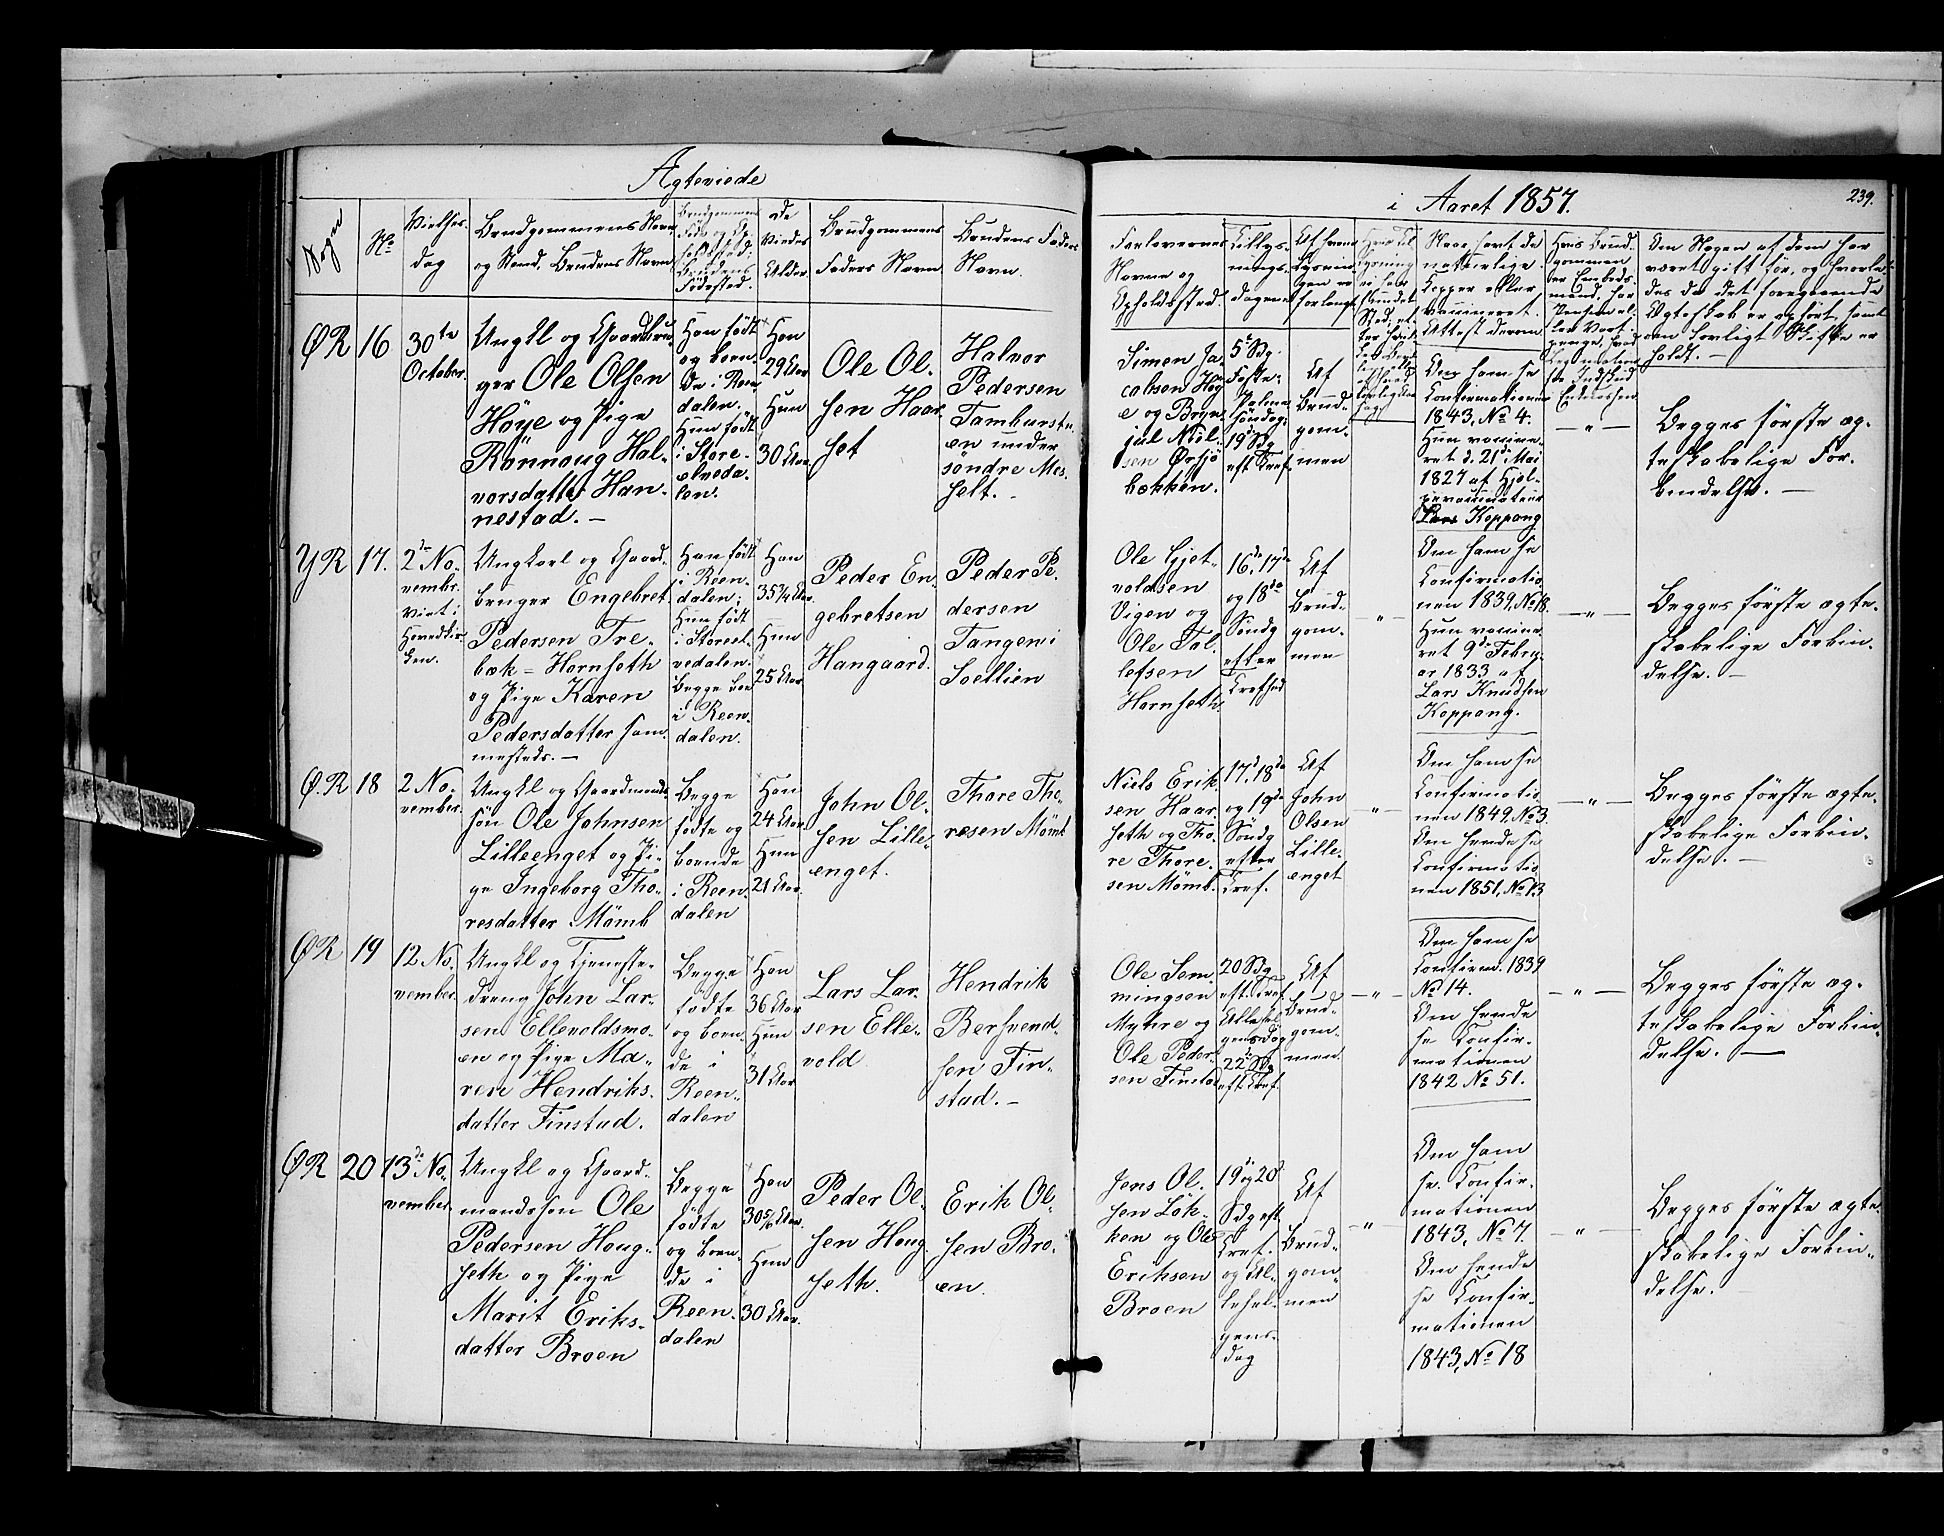 Ægteviede
i Aaret 1857.
239.
Sogn
No
Vielses
dag
Brudgommens Navn
og Stand, Brudens Navn
Brudgommens
Føde og Op-
holdssted;
Brudens
Fødested.
De
Viedes
Alder.
Brudgommens
Faders Navn
Brudens Faders
Navn.
Forlovernes
Navne og
Opholdssted.
Tillys-
nings-
dagene
Af hvem
Lysnin-
gen er
forlangt
Hvis Brud-
gommen
er Embeds-
mand, har
Om Nogen af dem har
været gift før, og hvorle-
des da det foregaaende
Ægteskab er opløst, samt
om lovligt Skifte er
holdt. —
ØR
16
30te
October.
Ungkl og Gaardbru-
ger Ole Olsen
Höye og Pige
Rönnoug Hal-
vorsdatter Han-
nestad. —
Han født
og boen-
de i Reen-
dalen.
Hun født
i Store-
elveda-
len.
Han
29 Aar
Hun
30 Aar.
Ole Ol-
sen Haar-
set
Halvor
Pedersen
Tamburstu-
en under
söndre Mes-
selt. -
Simen Ja-
cobsen Höy-
e og Bryn-
jul Niel-
sen Örsjö-
bækken.
5te Sdg.
Faste-
Palme
Söndag
19de Sdg
eft Tref.
Af
Brud-
gom-
men
Om ham se
Confirmationen
1843, No 4.
Hun vaccine-
ret d. 21de Mai
1827 af Hjel-
pevaccinateur
Lars Koppang
— " —
Begges første æg-
teskabelige For-
bindelse. —
YR
17.
2de No-
vembr.
viet i
Hovedkir-
ken.
Ungkarl og Gaard-
bruger Engebret
Pedersen Tre-
bæk = Hornseth
og Pige Karen
Pedersdatter sam-
mesteds. —
Han født
i Reen-
dalen;
Hun født
i Storeel-
vedalen.
Begge boe
i Reen-
dalen.
Han
35 3/4 Aar.
Hun
25 Aar
Peder En-
gebretsen
Hangaard.
Peder Pe-
dersen
Tangen i
Sollien
Ole Gjet-
voldsen
Vigen og
Ole Tal-
lefsen
Hornseth
16de, 17de
og 18de
Søndg
efter
Trefhed
Af
Brud-
gom-
men
"
Om ham se
Confirmatio-
nen 1839, No 18.
Hun vaccine-
ret 9de Febru-
ar 1833 af
Lars Knudsen
Koppang.
— " —
Begges første ægte-
skabelige Forbin-
delse. —
Ø.R
18
2 No-
vember.
Ungkl og Gaardmands-
sön Ole Johnsen
Lilleenget og Pi-
ge Ingeborg Tho-
resdatter Mömb
Begge
fødte og
boende
i Reen-
dalen
Han
24 Aar
Hun
21 Aar.
John Ol-
sen Lille-
enget.
Thore Tho-
resen Mömb
Niels Erik-
sen Haar-
seth og Tho-
re Thore-
sen Mömb.
17de, 18de
og 19de
Søndg
efter
Tref.
Af
John
Olsen
Lille-
enget
"
Om ham se
Confirmatio-
nen 1849. No 3.
Om hende se
Confirmatio-
nen 1851, No 13
— " —
Begges første ægte-
skabelige Forbin-
delse. —
ØR
19
12 No-
vember.
Ungkl og Tjeneste-
dreng John Lar-
sen Ellevoldsmo-
en og Pige Ma-
ren Hendriks-
datter Finstad.
Begge
fødte
og boen-
de i
Reen-
dalen
Han
36 Aar
Hun
31 Aar
Lars Lar-
sen Elle-
vold
Hendrik
Bersvend-
sen Fin-
stad. —
Ole Sem-
mingsen
Myhre og
Ole Peder-
sen Finstad
20 Sdg
eft. Tref.
Allehel-
gensdag
22de Sdg
eft Tref.
Af
Brud-
gom-
men.
— " —
Om ham se
Confirm. 1839
No 14.
Om hende
se Confir-
mationen
1842 No 51.
— " —
Begges første æg-
teskabelige Forbin-
delse. —
ØR
20
13de No-
vember.
Ungkl og Gaard-
mandssøn Ole
Pedersen Houg-
seth og Pige
Marit Eriks-
datter Broen
Begge
fødte
og boen-
de i
Reen-
dalen
Han
30 5/6 Aar.
Hun
30 Aar.
Peder Ol-
sen Houg-
seth.
Erik Ol-
sen Bro-
en.
Jens Ol-
sen Løk-
ken og Ole
Eriksen
Broen
19de og 20de
Sdg eft
Tref.
og Al-
lehel-
gens-
dag
Af
Brud-
gom-
men
— " —
Om ham
se Confir-
mationen
1843, No 7.
Om hende
se Confir-
mationen
1843, No 18
— " —
Begges første ægte-
skabelige Forbin-
delse.